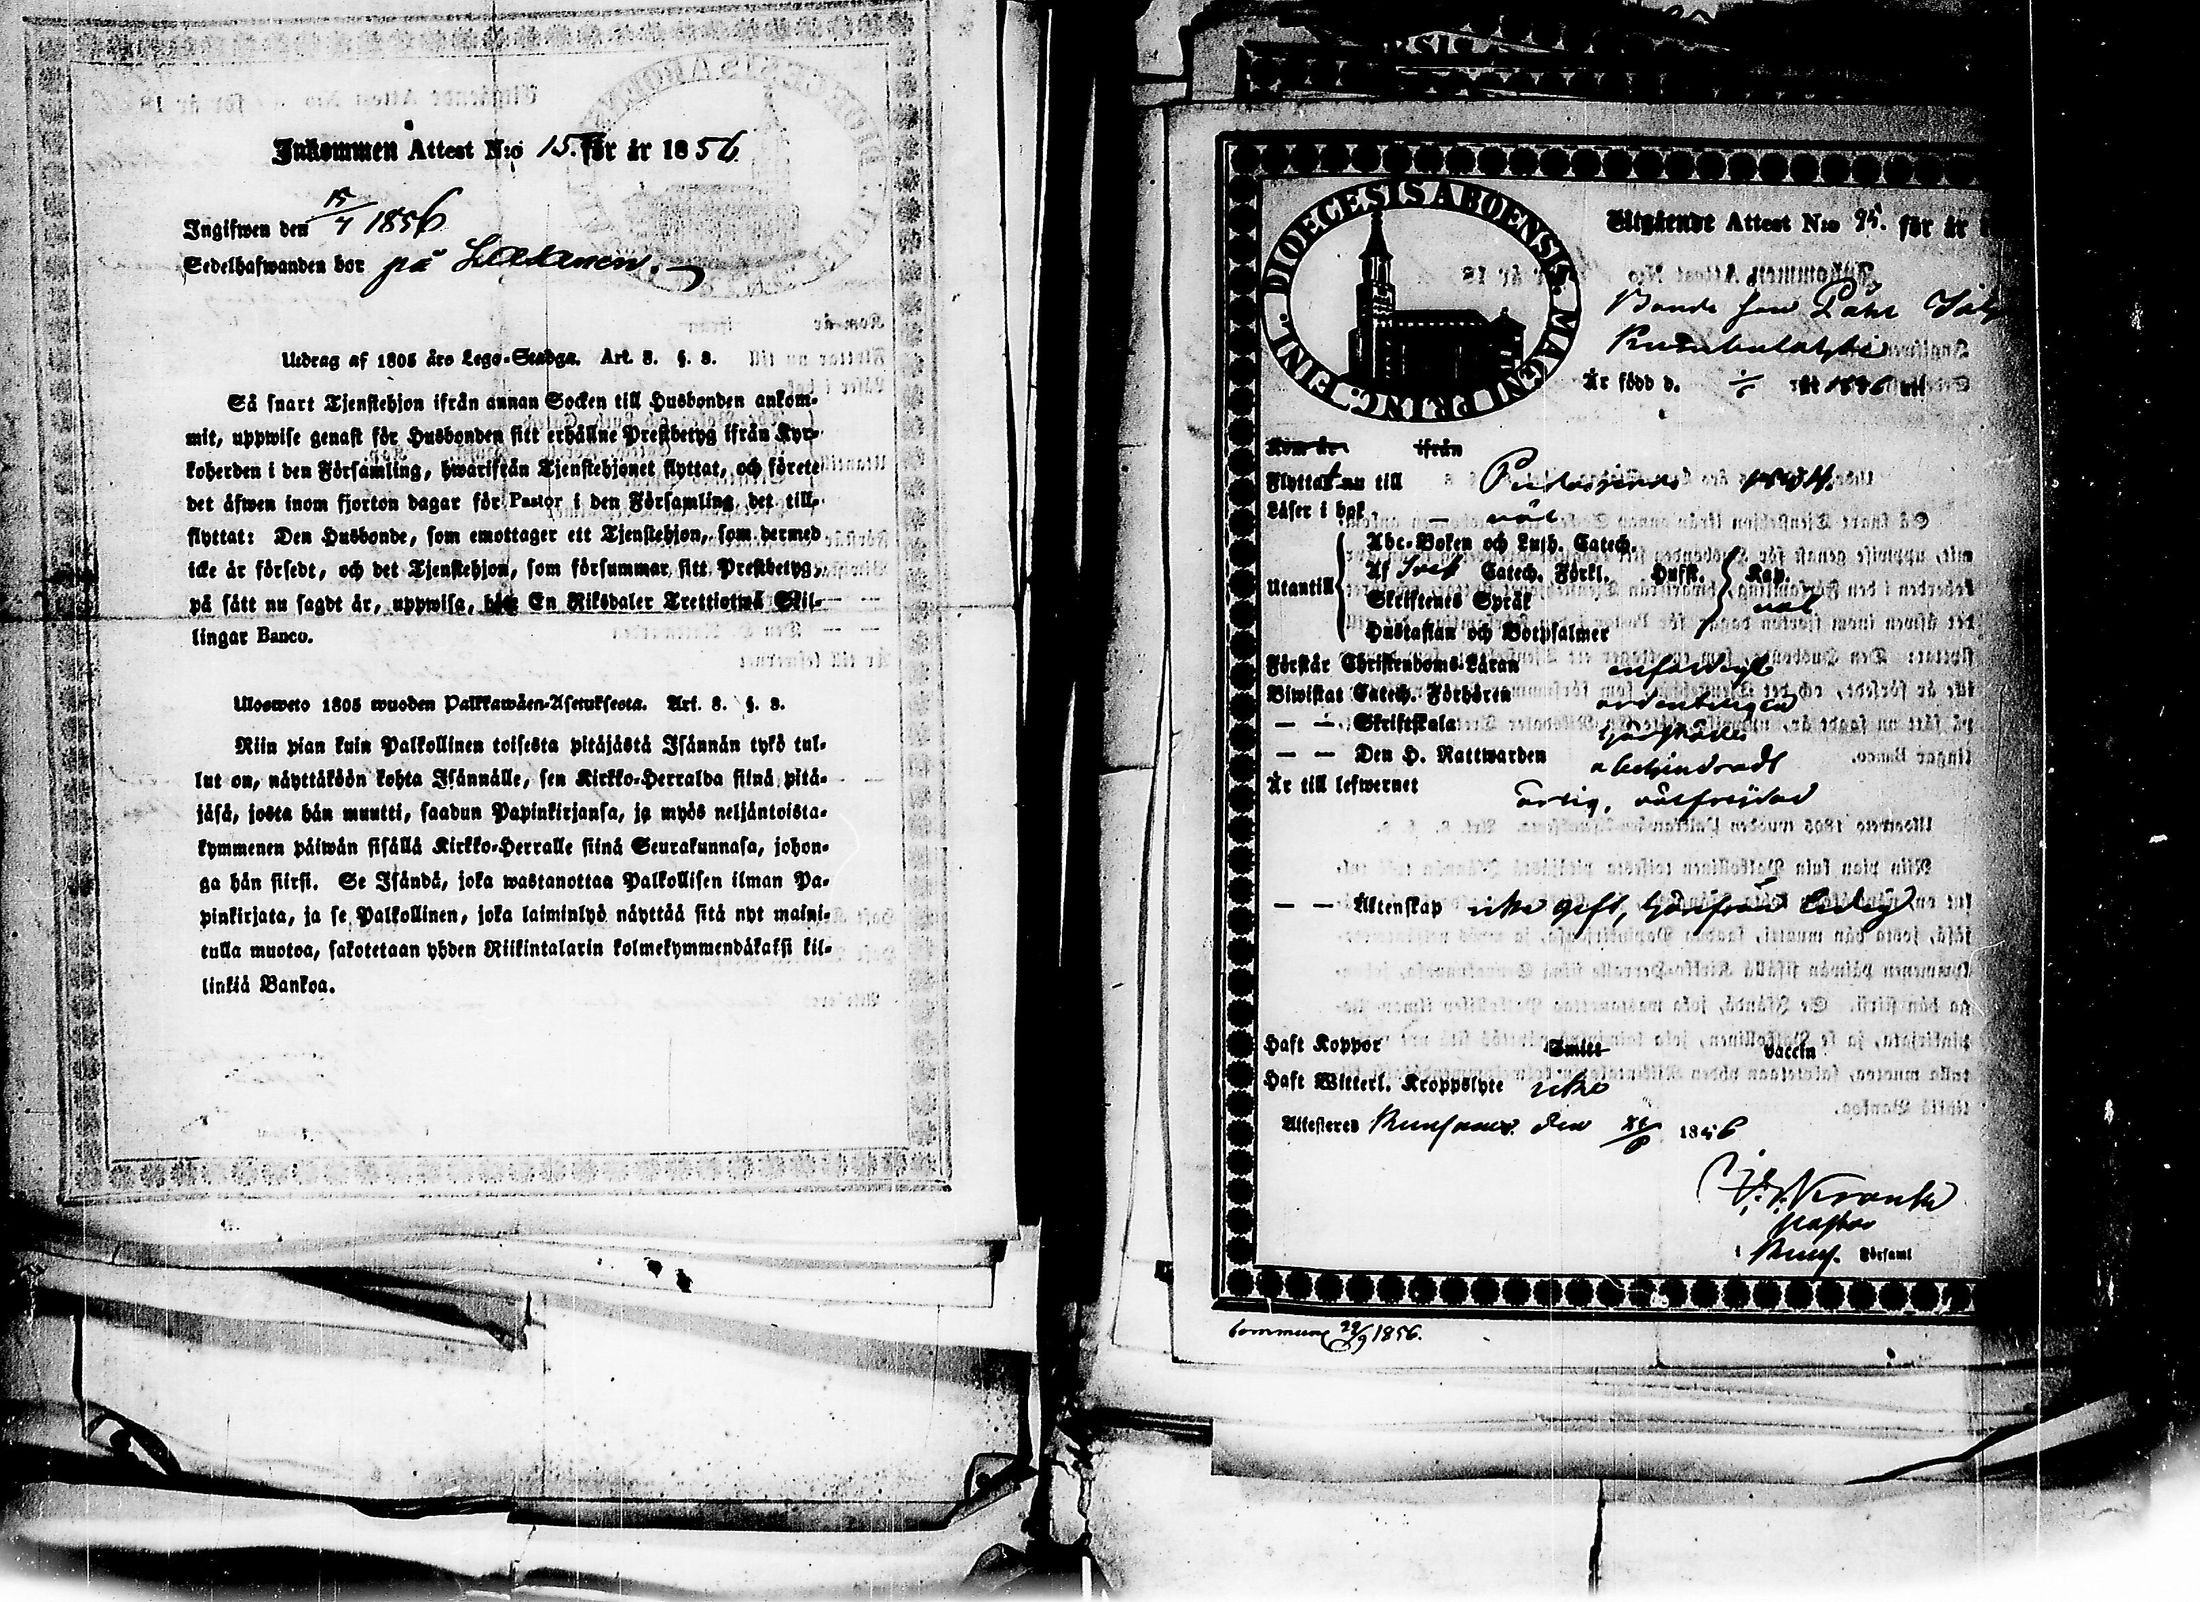 Inkommen Attest N:o 15. för år 1856
Ingifwen den 15/4 1856
Sedelhafwanden bor på
Utdrag af 1805 års Lego-Stadga. Art. 8. §. 8.
Så snart Tjenstehjon ifrån annan Socken till Husbonden ankom-
mit, uppwise genast för Husbonden sitt erhållne Prestbetyg ifrån Kyr-
koherden i den Församling, hwarifrån Tjenstehjonet flyttat, och förete
det äfwen inom fjorton dagar för Pastor i den Församling det till-
flyttat: Den Husbonde, som emottager ett Tjenstehjon, som dermed
icke är försedt, och det Tjenstehjon, som försummar sitt Prestbetyg,
på sätt nu sagdt är, uppwisa, böte En Riksdaler Trettiotwå Skil-
lingar Banco.
Ulosweto 1805 wuoden Palkkawäen-Asetuksesta. Art. 8. §. 8.
Niin pian kuin Palkollinen toisesta pitäjästä Isännän tykö tul-
lut on, näyttäköön kohta Isännälle, sen Kirkko-Herralda siinä pitä-
jäsä, josta hän muutti, saadun Papinkirjansa, ja myös neljäntoista-
kymmenen päiwän sisällä Kirkko-Herralle siinä Seurakunnasa, johon-
ga hän siirsi. Se Isändä, joka wastanottaa Palkollisen ilman Pa-
pinkirjata, ja se Palkollinen, joka laiminlyö näyttää sitä nyt maini-
tulla muotoa, sakotetaan yhden Riikintalarin kolmekymmendäkaksi kil-
linkiä Bankoa.
DIOECESIS ABOENSIS. MAGNI PRINC. FINL.
Utgående Attest N:o 95. för år
Bonde son Påhl
Är född d. året 1836 uti
Kom år ifrån
Flyttat nu till
Läser i bok — väl
Abc-Boken och Luth. Catech.
Utantill Af Sveb. Catech. Förkl. Hufst. Kap.
Skriftenes Språk väl
Hustaflan och Botpsalmer
Förstår Christendoms-Läran enfaldigt
Biwistat Catech. Förhören ordenteligen
— — Skriftskala
— — Den H. Nattwarden obehindradt
Är till lefwernet ärlig, välfrejdad
— — Äktenskap icke gift, härifrån ledig
Haft Koppor Smitt Vaccin
Haft Witterl. Kroppslyte icke
Attesteres den 1856
Pastor
i Församl
22/9 1856.